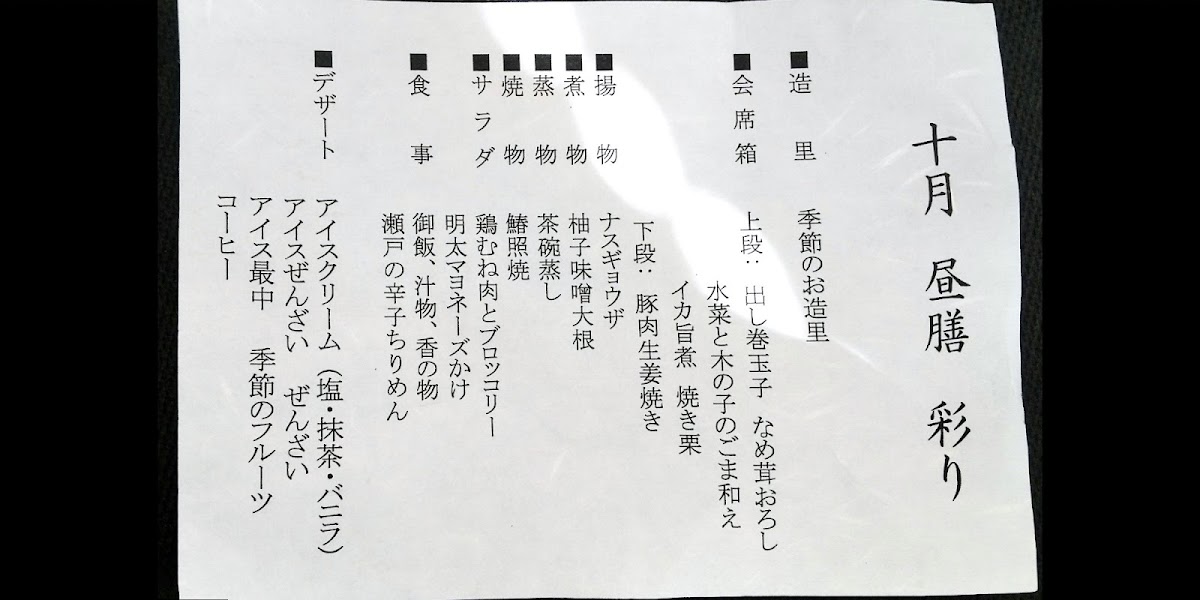 十月 昼膳 彩り
■造里 季節のお造里
■会席箱 上段： 出し巻玉子 なめ茸おろし
水菜と木の子のごま和え
イカ旨煮 焼き栗
下段： 豚肉生姜焼き
■揚物 ナスギョウザ
■煮物 柚子味噌大根
■蒸物 茶碗蒸し
■焼物 鰆照焼
■サラダ 鶏むね肉とブロッコリー
明太マヨネーズかけ
■食事 御飯、汁物、香の物
瀬戸の辛子ちりめん
■デザート アイスクリーム（塩・抹茶・バニラ）
アイスぜんざい ぜんざい
アイス最中 季節のフルーツ
コーヒー